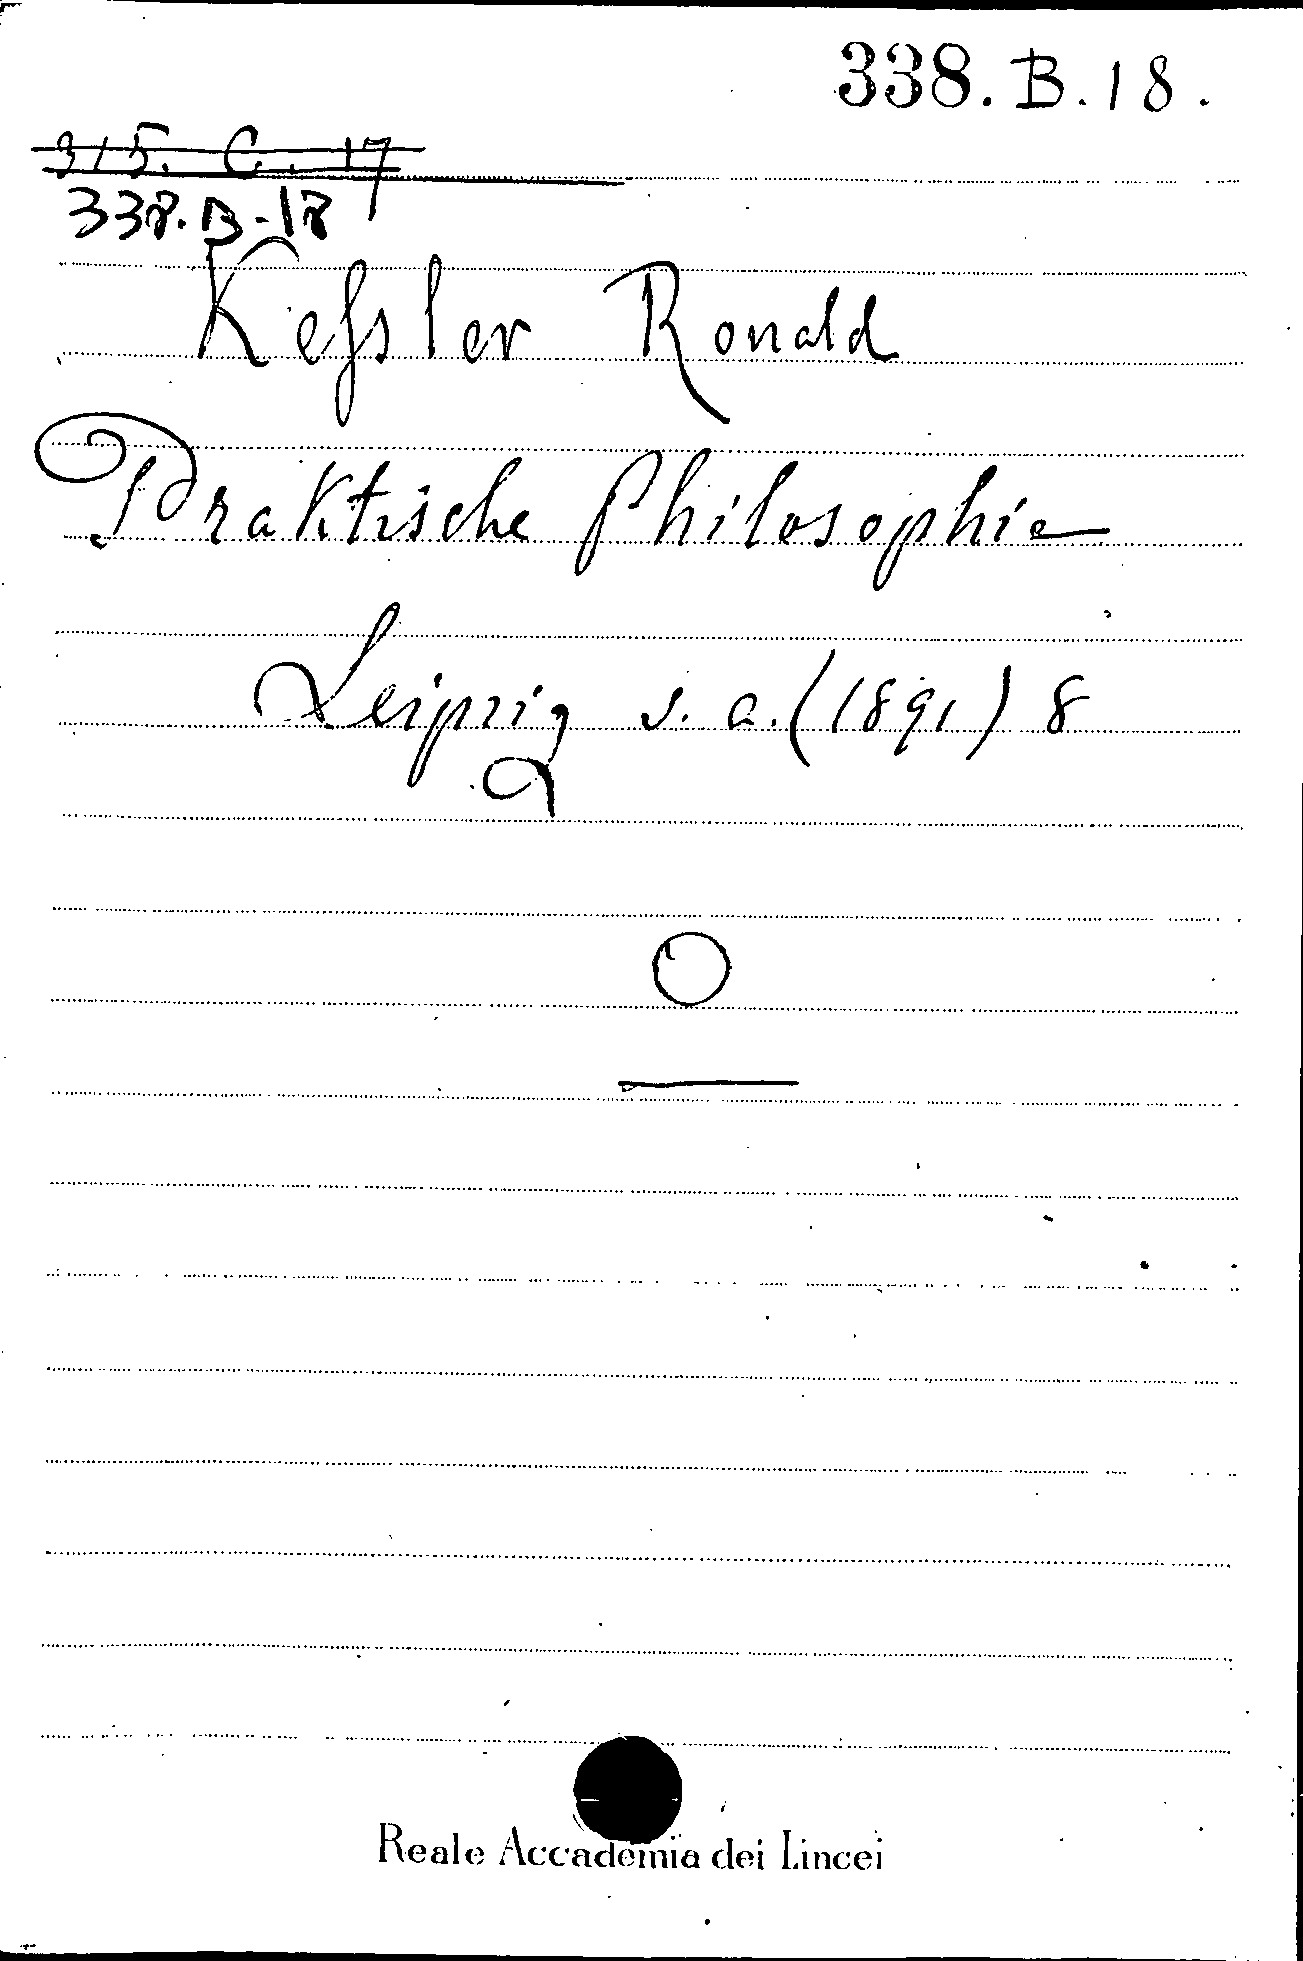 338.B.18.
315. C. 17
338.B-18
Kessler Ronald
Praktische Philosophie
Leipzig s. a. (1891) 8
Reale Accademia dei Lincei